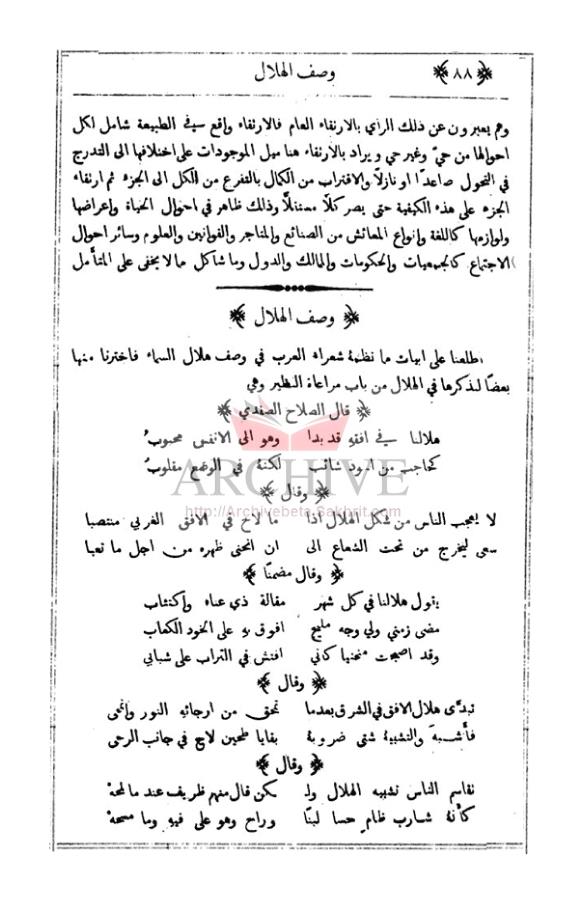 ﴿٨٨﴾ وصف الهلال
وهم يعبرون عن ذلك الرأي بالارتقاء العام فالارتقاء واقع في الطبيعة شامل لكل
احوالها من حيّ وغير حي ويراد بالارتقاء هنا ميل الموجودات على اختلافها الى التدرج
في التحول صاعدًا او نازلًا والاقتراب من الكمال بالتفرع من الكل الى الجزء ثم ارتقاء
الجزء على هذه الكيفية حتى يصير كلًا مستقلًا وذلك ظاهر في احوال الحياة واعراضها
ولوازمها كاللغة وانواع المعائش من الصنائع والمتاجر والقوانين والعلوم وسائر احوال
الاجتماع كالجمعيات والحكومات والممالك والدول وما شاكل مما لا يخفى على المتأمل
﴿ وصف الهلال ﴾
اطلعنا على ابيات مما نظمهُ شعراء العرب في وصف هلال السماء فاخترنا منها
بعضًا لنذكرها في الهلال من باب مراعاة النظير وهي
﴿ قال الصلاح الصفدي ﴾
هلالنا في افقهِ قد بدا وهو الى الانفس محبوبُ
كحاجب من اسود شائب لكنهُ في الوضع مقلوبُ
ARCHIVE
﴿ وقال ﴾
http://Archivebeta.Sakhrit.com
لا يعجب الناس من شكل الهلال اذا ما لاح في الافق الغربي منتصبا
سعى ليخرج من تحت الشعاع الى ان انحنى ظهره من اجل ما تعبا
﴿ وقال مضمنًا ﴾
يقول هلالنا في كل شهر مقالة ذي عناء واكتئاب
مضى زمني ولي وجه مليح افوق بهِ على الخود الكعاب
وقد اصبحت منحنيا كاني افتش في التراب على شبابي
﴿ وقال ﴾
تبدَّى هلال الافق في الشرق بعدما تمحق من ارجائهِ النور وانمحى
فأشبهَ والتشبيهُ شتى ضروبهُ بقايا طحين لاح في جانب الرحى
﴿ وقال ﴾
تقاسم الناس تشبيه الهلال ولم يكن قال منهم ظريف عند ما لمحهْ
كأنهُ شارب ظام حسا لبنًا وراح وهو على فيهِ وما مسحهْ